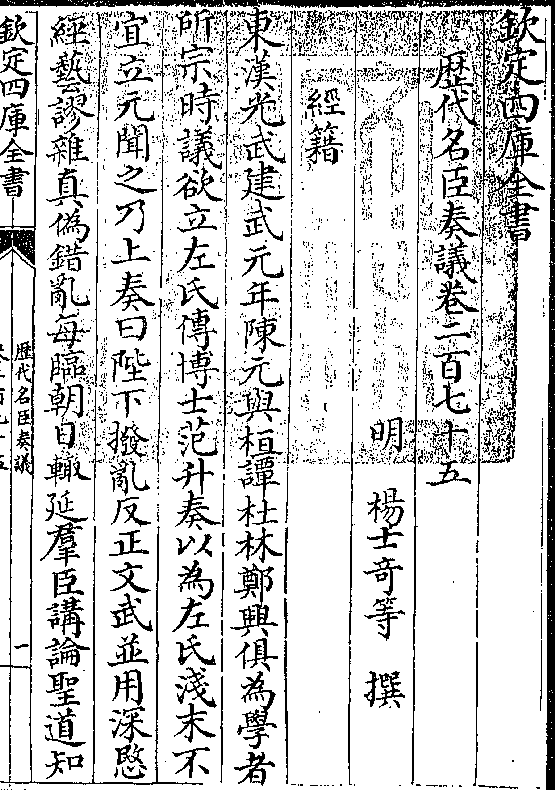 欽定四庫全書
歷代名臣奏議卷二百七十五
明 楊士奇等 撰
經籍
東漢光武建武元年陳元與桓譚杜林鄭興俱為學者
所宗時議欲立左氏傳博士范升奏以為左氏淺末不
宜立元聞之乃上奏曰陛下撥亂反正文武並用深愍
經藝謬雜真偽錯亂每臨朝日輙延羣臣講論聖道知
欽定四庫全書
歷代名臣奏議
一